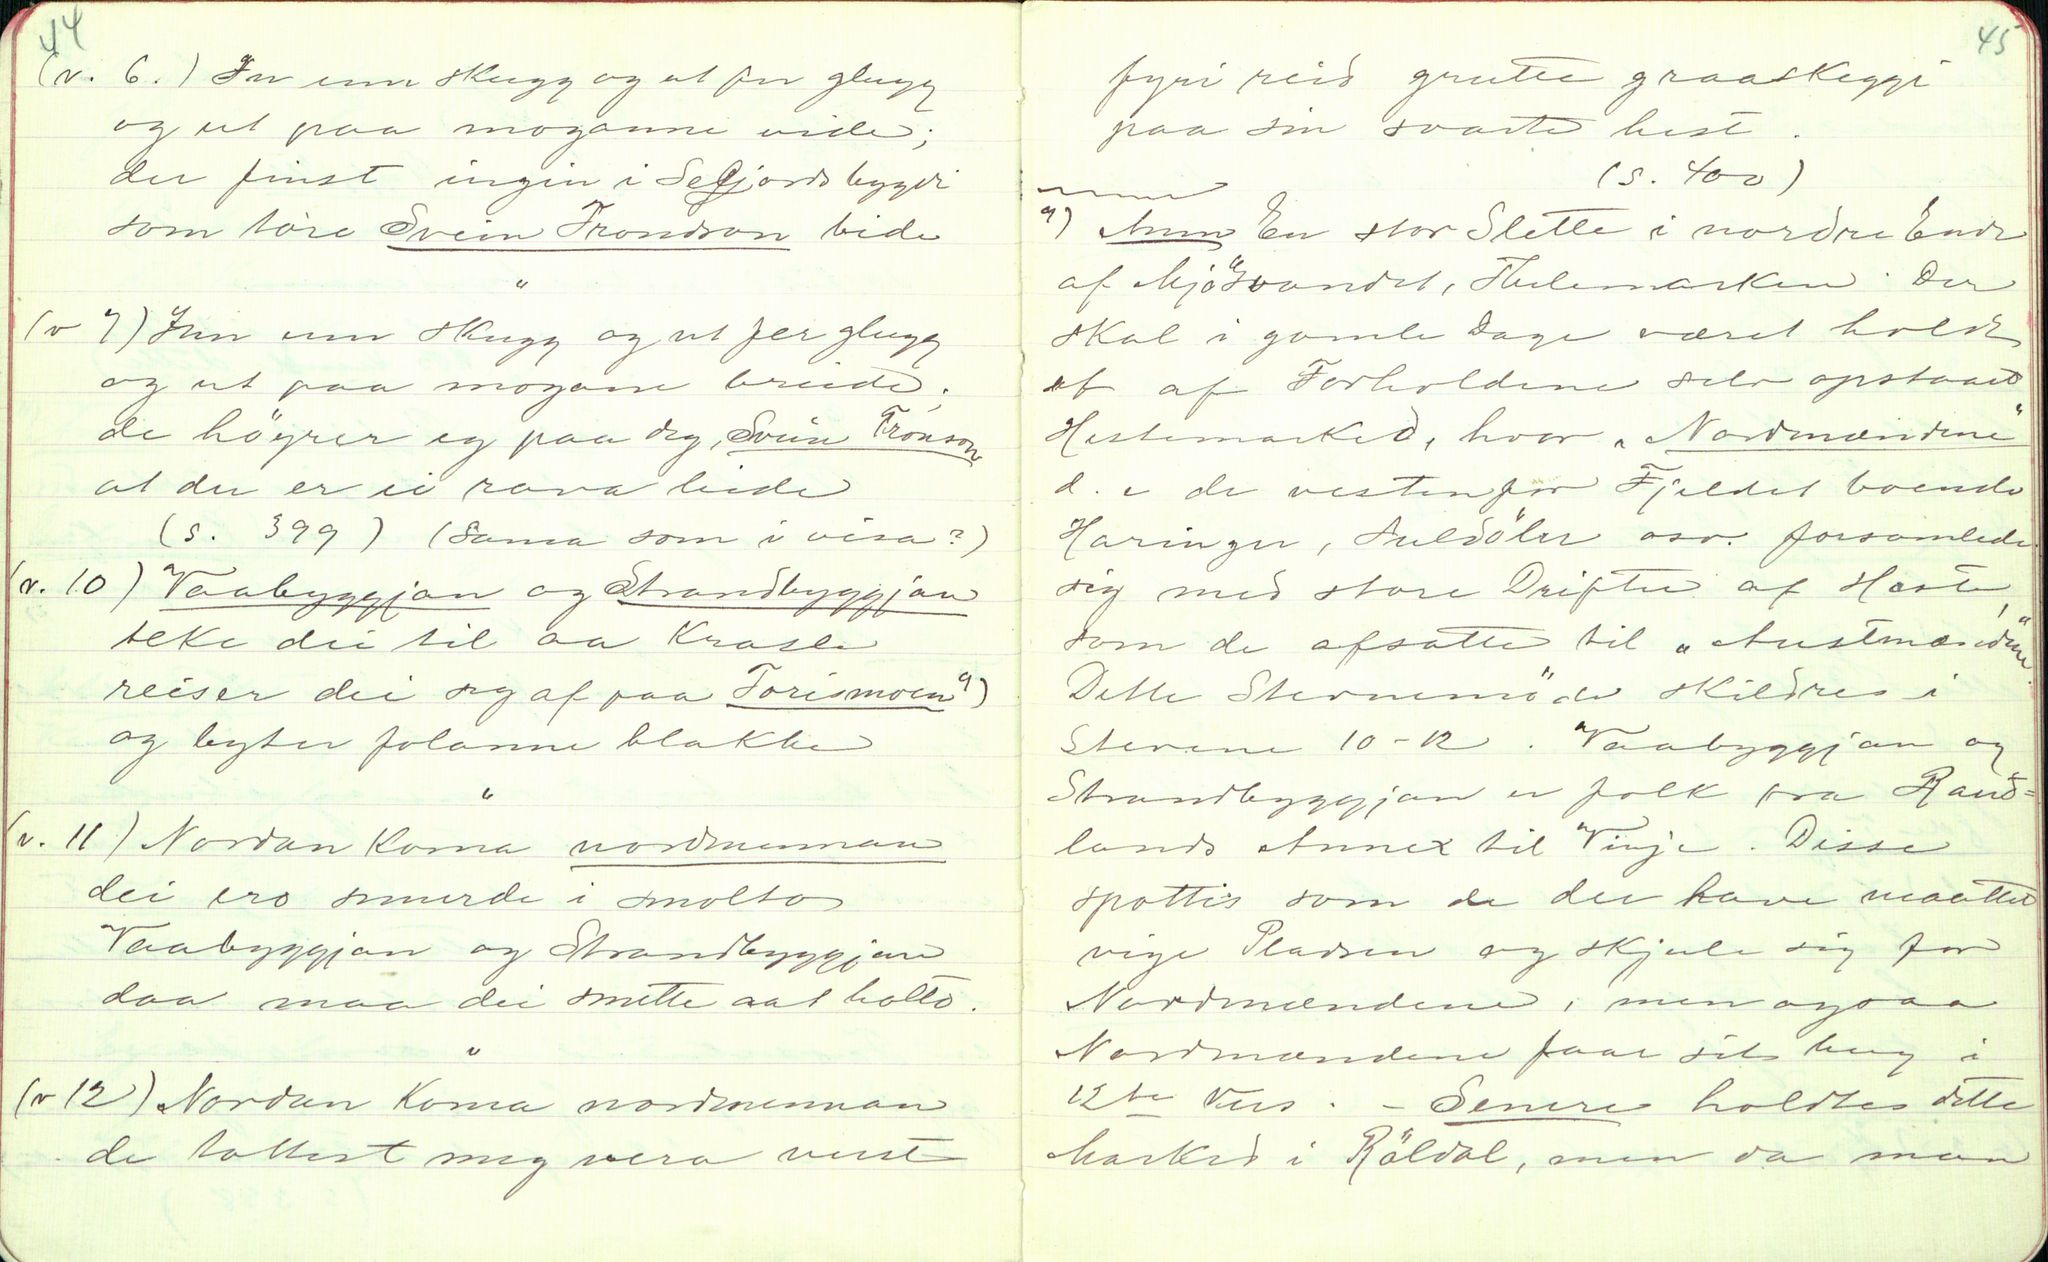 44
(v. 6.) Inn um skugg og ut fer glugg
og ut paa moganne vide;
der finst ingin i Seljordsbygdi
som tore Svein Trondson bide
"
(v 7) Inn um skugg og ut fer glugg
og ut paa mogane breide;
de höyrer eg paa deg, Svein Tronson
at du er ei rava leide
(s. 399) (Sama som i visa?)
(v. 10) Vaabyggjan og Strandbyggjan
teke dei til aa Krasle
reiser dei seg af paa Torismoen a)
og byter folanne blakke
"
(v. 11) Nordan Koma nordmennan
dei ero smurde i smolto
Vaabyggjan og Strandbyggjan
daa maa dei smette aat holto.
"
(v 12) Nordan Koma nordmennan
de tottest meg vera verst
45
fyri reid grute graaskeggi
paa sin svarte hest.
(s. 400)
a) Anm En stor Slette i nordre Ende
af Mjösvandet, Thelemarken. Der
skal i gamle Dage været holdt
et af Forholdene selv opstaaet
Hestemarked, hvor „Nordmændene"
d. e de vestenfor Fjeldet boende
Haringer, Suldöler osv. forsamlede
sig med store Drifter af Heste,
som de afsatte til „Austmændene".
Dette Stevnemöde skildres i
Stevene 10-12. Vaabyggjan og
Strandbyggjan er folk fra Rauð-
lands Annex til Vinje. Disse
spottis som de der have maattet
vige Pladsen og skjule sig for
Nordmændene, men ogsaa
Nordmændene faar sit hug i
12te Vers. - Senere holdtes dette
Marked i Röldal, men da man